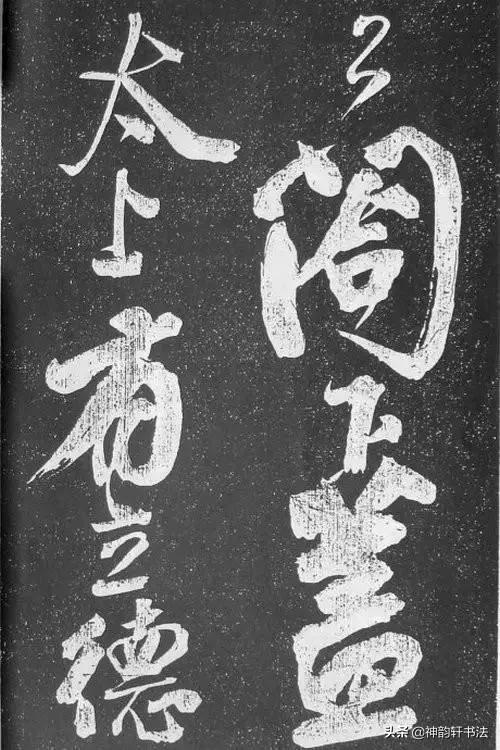 公閤下蓋
太上有立德
头条 @神韵轩书法